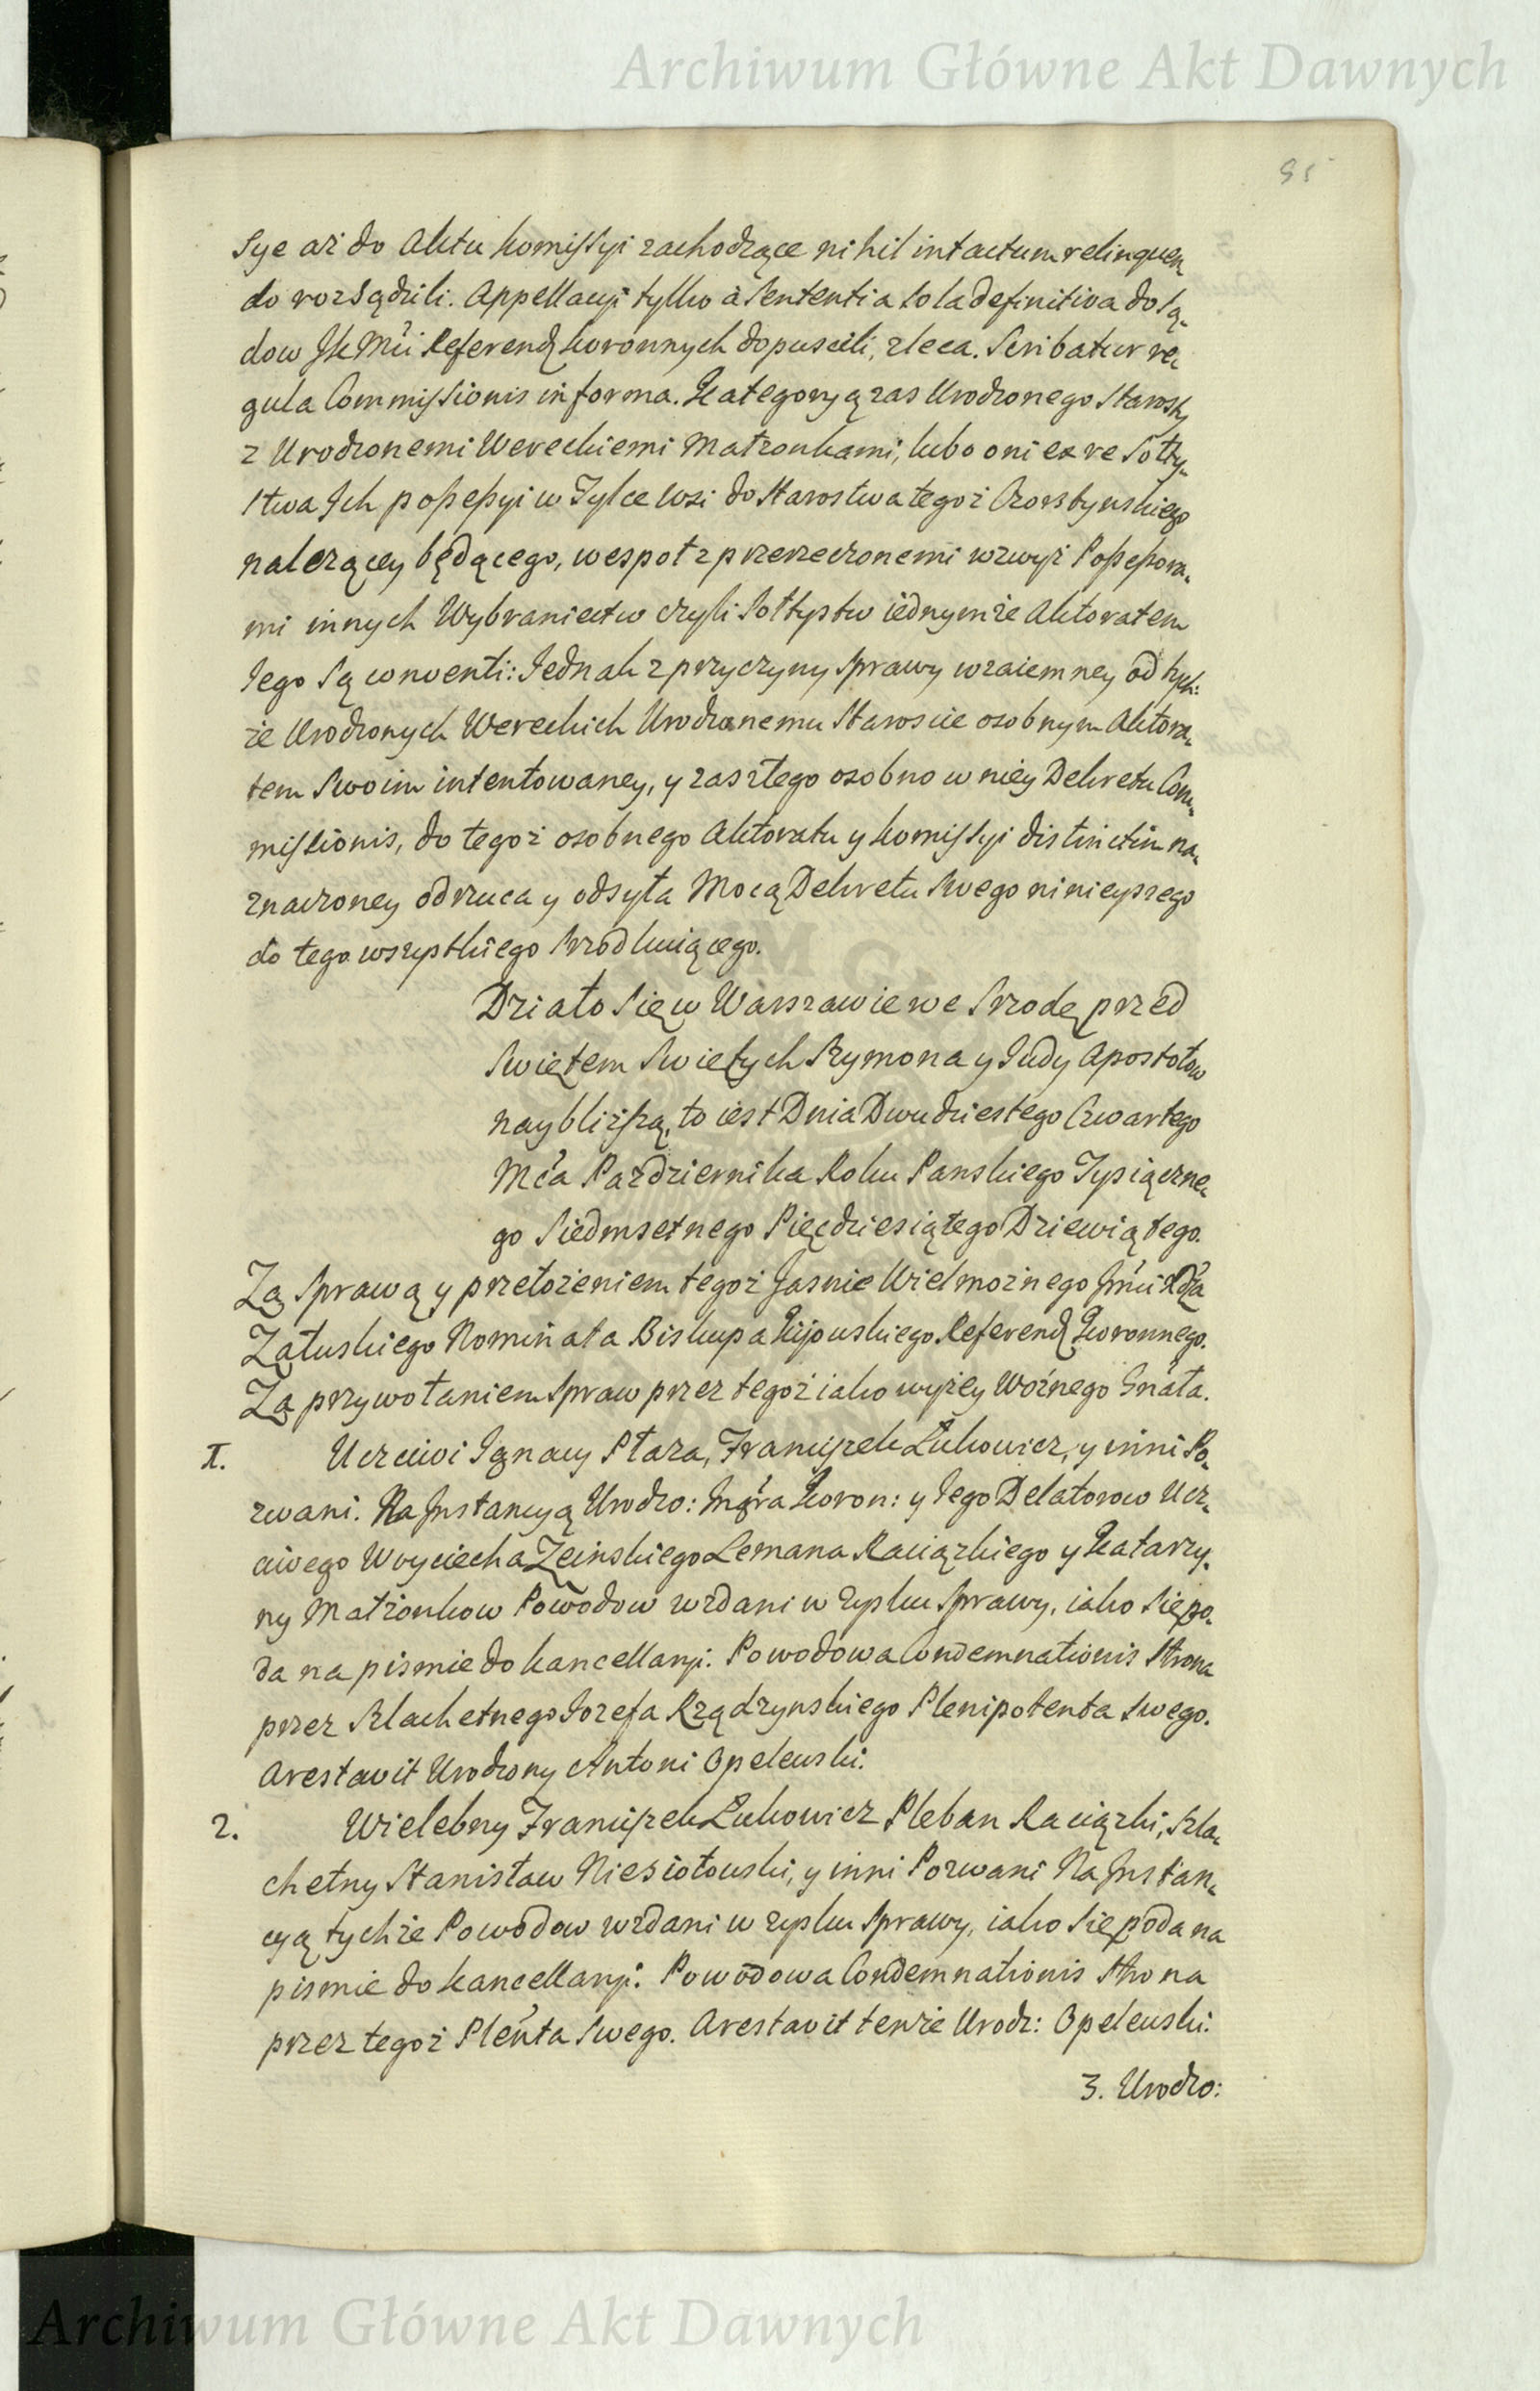 Archiwum Główne Akt Dawnych
95
sye aż do Aktu kommissyi zachodzące nihil intactum relinquen
do rozsądzili. Appellacyi tylko à Sententia sola definitiva do Są
dow Jch Mći Referend. koronnych dopuscili, zleca. Scribatur re
gula Commissionis in forma. Kategoryą zas Urodzonego Starosty
z Urodzonemi Wereckiemi Małzonkami, lubo oni ex re Sołty
stwa Jch possessyi w Tylce wsi do Starostwa tegoż Czorsztynskiego
nalezącey będącego, wespoł z przerzeczonemi wzwyż Possessora
mi innych Wybraniectw czyli Sołtystw iednymże Aktoratem
Jego są conventi: Jednak z przyczyny sprawy wzaiemney od tych
że Urodzonych Wereckich Urodzonemu Staroscie osobnym Aktora
tem swoim intentowaney, y zaszłego osobno w niey Dekretu Com
missionis, do tegoż osobnego Aktoratu y kommissyi distinctim na
znaczoney odrzuca y odsyła Mocą Dekretu swego ninieyszego
do tego wszystkiego srzodkuiącego.
Działo się w Warszawie we Srzodę przed
Swiętem Swiętych Szymona y Judy Apostołow
nayblizszą, to iest Dnia Dwudziestego Czwartego
Mća Pazdziernika Roku Panskiego Tysiączne
go Siedmsetnego Pięcdziesiątego Dziewiątego.
Zą Sprawą y przełożeniem tegoż Jasnie Wielmożnego Jmći Xdza
Załuskiego Nominata Biskupa Kijowskiego Referend. Koronnego.
Zą przywołaniem Spraw przez tegoż iako wyżey Woźnego Gnáta.
I. Uczciwi Jgnacy Ptaza, Franciszek Łukowicz, y inni Po
zwani. Na Jnstancyą Urodzo: Jnstra Koron: y Jego Delatorow Ucz
ciwego Woyciecha Zeinskiego Lemana Raciązkiego y Katarzy
ny Małżonkow Powodow wzdani w zysku sprawy, iako się po
da na pismie do kancellaryi. Powodowa Condemnationis strona
przez Szlachetnego Jozefa Rządzynskiego Plenipotenta swego.
Arestavit Urodzony Antoni Opelewski.
2. Wielebny Franciszek Łukowicz Pleban Raciązki, Szla
chetny Stanisław Niesiołowski, y inni Pozwani Na Jnstan
cyą tychże Powodow wzdani w zysku sprawy, iako się poda na
pismie do kancellaryi. Powodowa Condemnationis strona
przez tegoż Pleńta swego. Arestavit tenże Urodz: Opelewski.
3. Urodzo:
Archiwum Główne Akt Dawnych